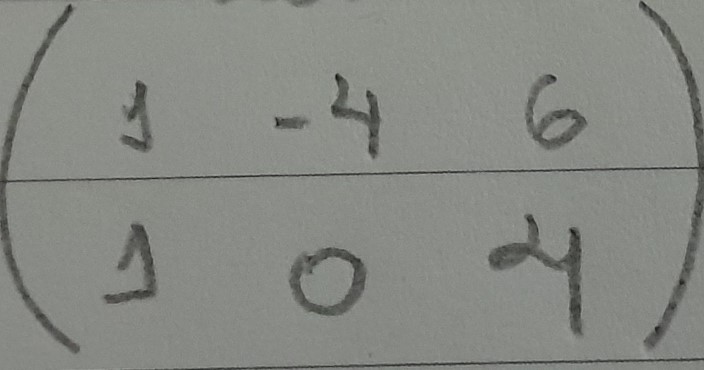 1 -4 6
1 0 4